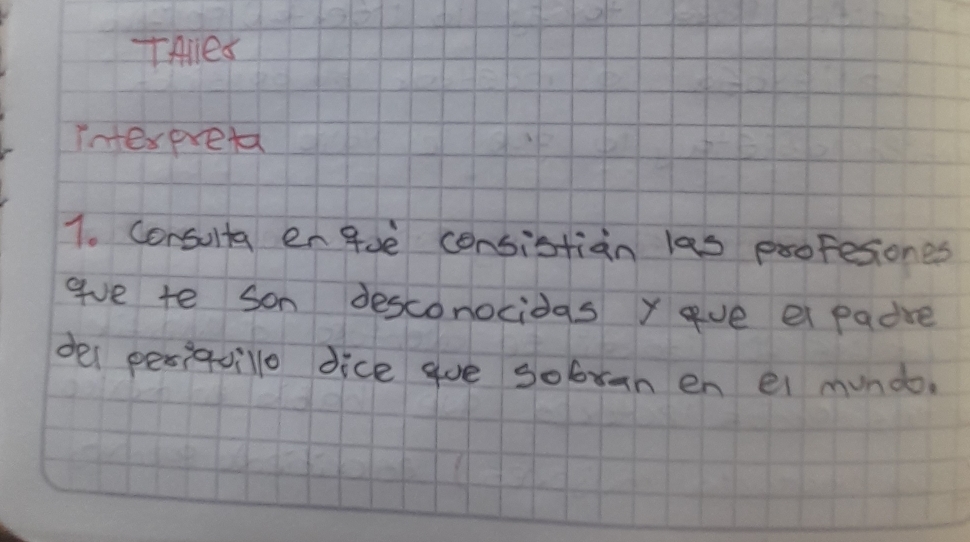 TAller
interpreta
1. Consulta en què consistián las profesiones
que te son desconocidas y que el padre
del periquillo dice que sobran en el mundo.